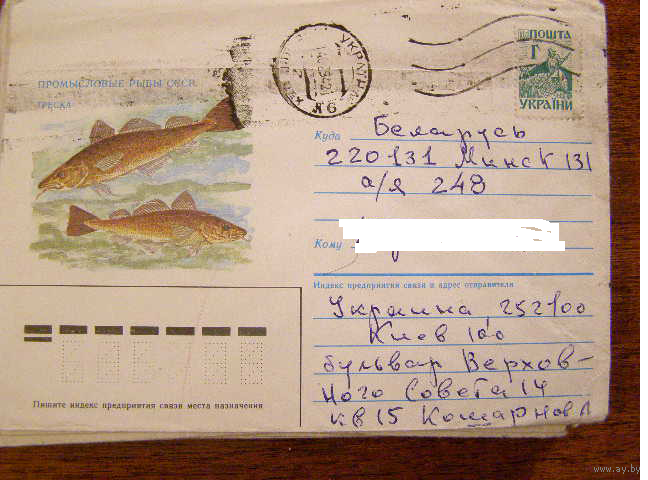 ПРОМЫСЛОВЫЕ РЫБЫ СССР
ТРЕСКА
УКРАЇНА
ПОШТА
Г
УКРАЇНИ
Куда Беларусь
220131 Минск 131
а/я 248
Кому
Индекс предприятия связи и адрес отправителя
Украина, 252100
Киев 100
бульвар Верхов-
ного Совета 14
кв 15 Комарнов Л
Пишите индекс предприятия связи места назначения
www.ay.by